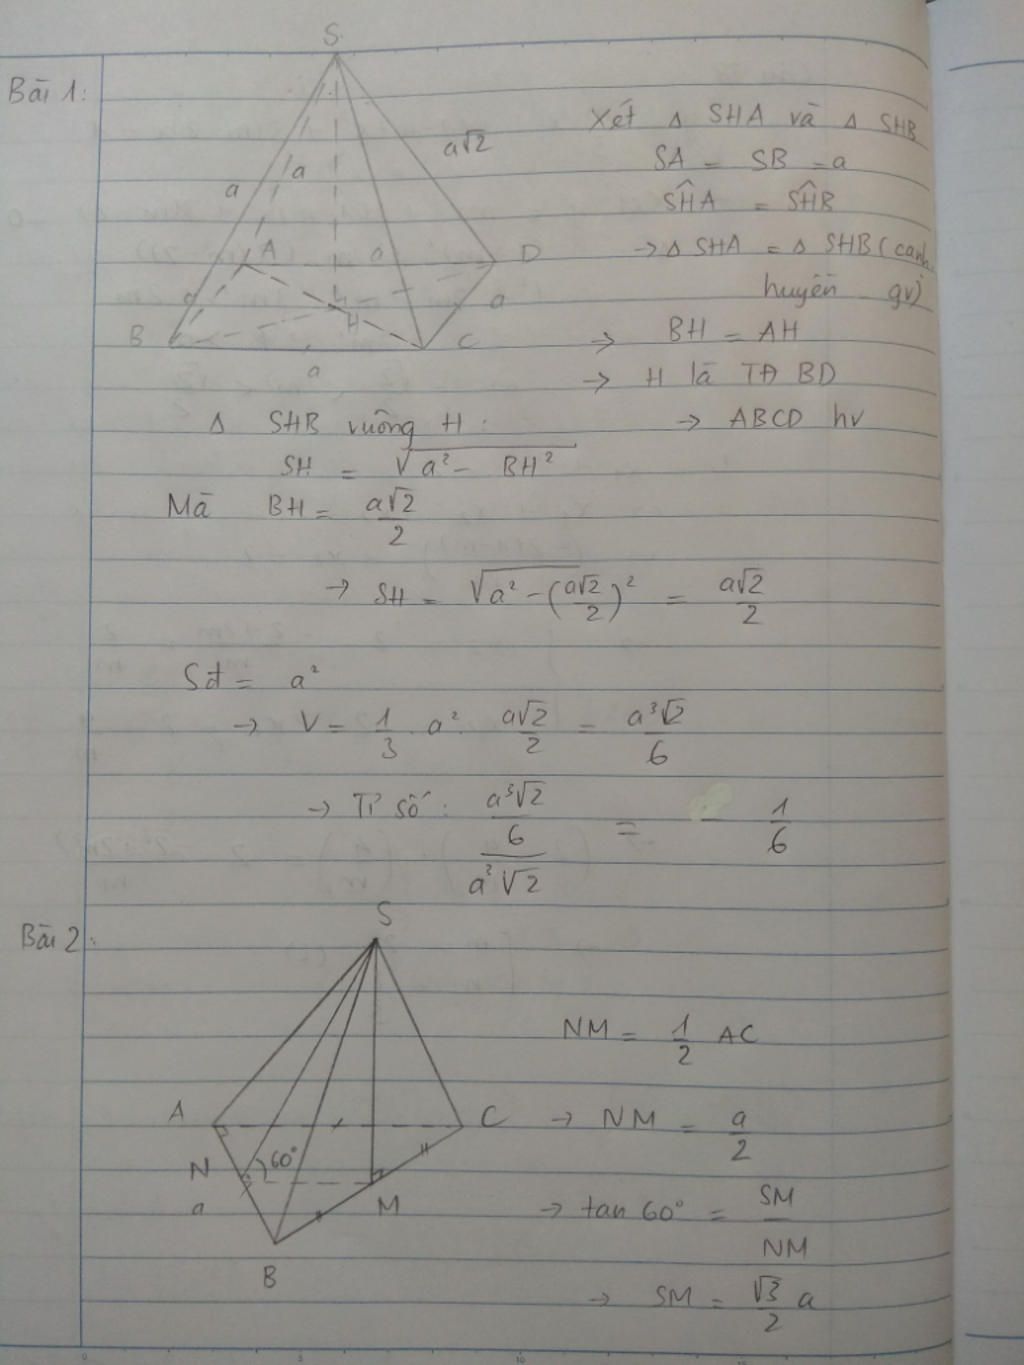 Bài 1:
S
a√2
a
a
A
a
D
a
a
B
H
C
a
Xét Δ SHA và Δ SHB
SA = SB = a
SĤA = SĤB
→ Δ SHA = Δ SHB (cạnh
huyền _ gv)
→ BH = AH
→ H là TĐ BD
→ ABCD hv
Δ SHB vuông H :
SH = √(a² - BH²)
Mà BH = a√2/2
→ SH = √(a² - (a√2/2)²) = a√2/2
Sđ = a²
→ V = 1/3 . a² . a√2/2 = a³√2/6
→ Tỉ số : (a³√2/6)/(a³√2) = 1/6
Bài 2:
S
A
C
N
60°
a
M
B
NM = 1/2 AC
→ NM = a/2
→ tan 60° = SM/NM
→ SM = √3/2 a